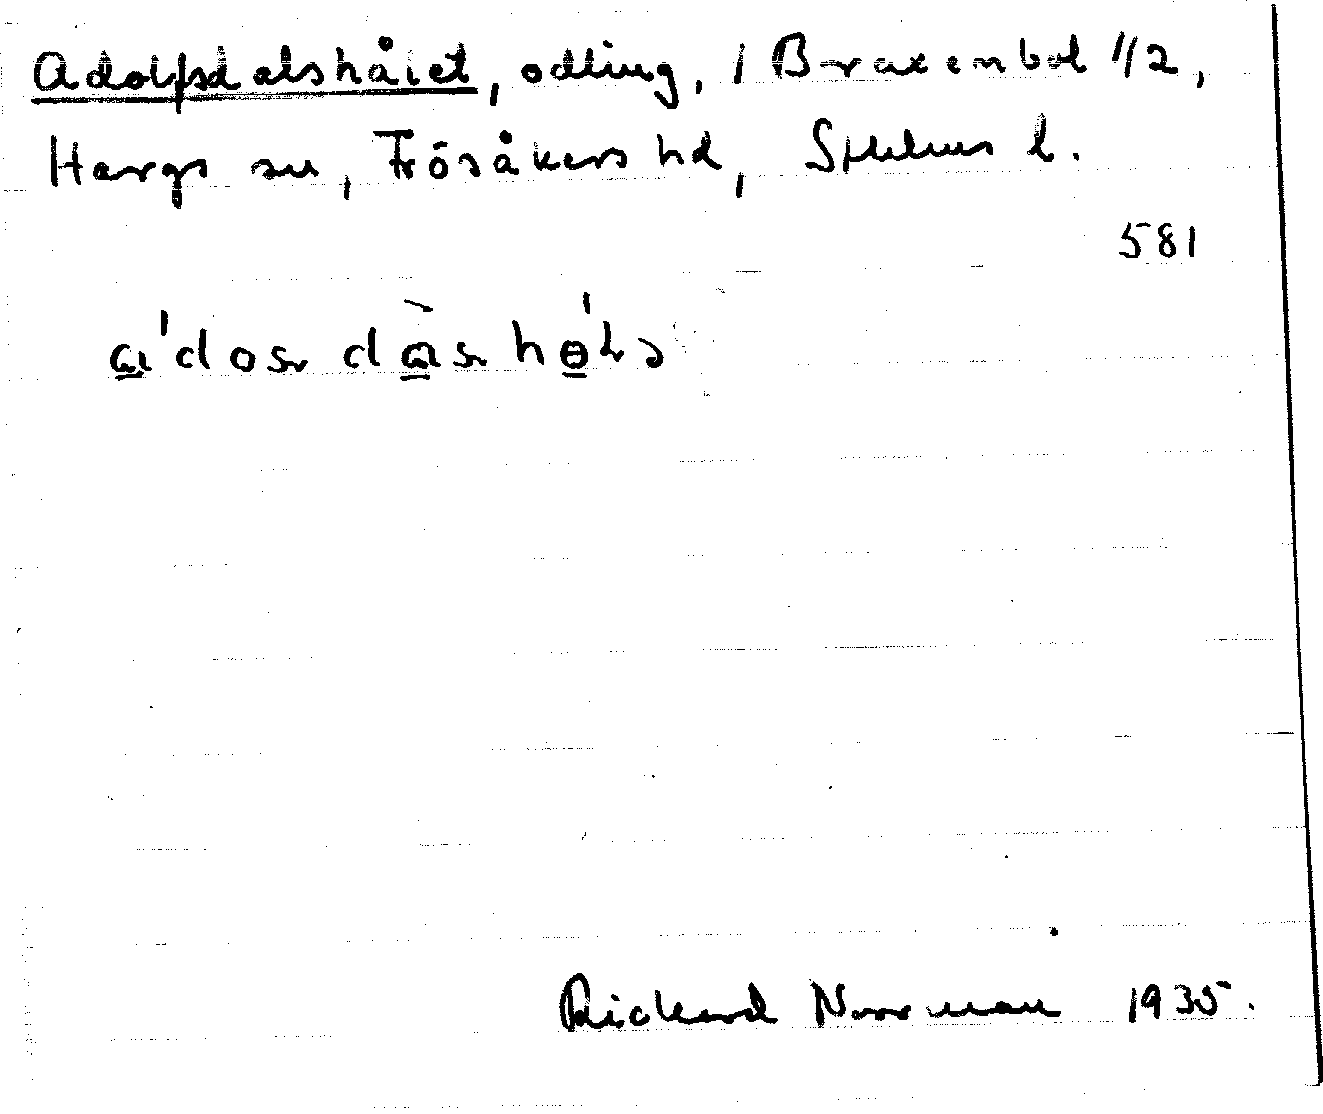 Adolfsdalshålet, odling, i Braxenbol 1/2,
Hargs sn, Frösåkers hd, Sthlms l.
581
Rickard Norrman 1935.